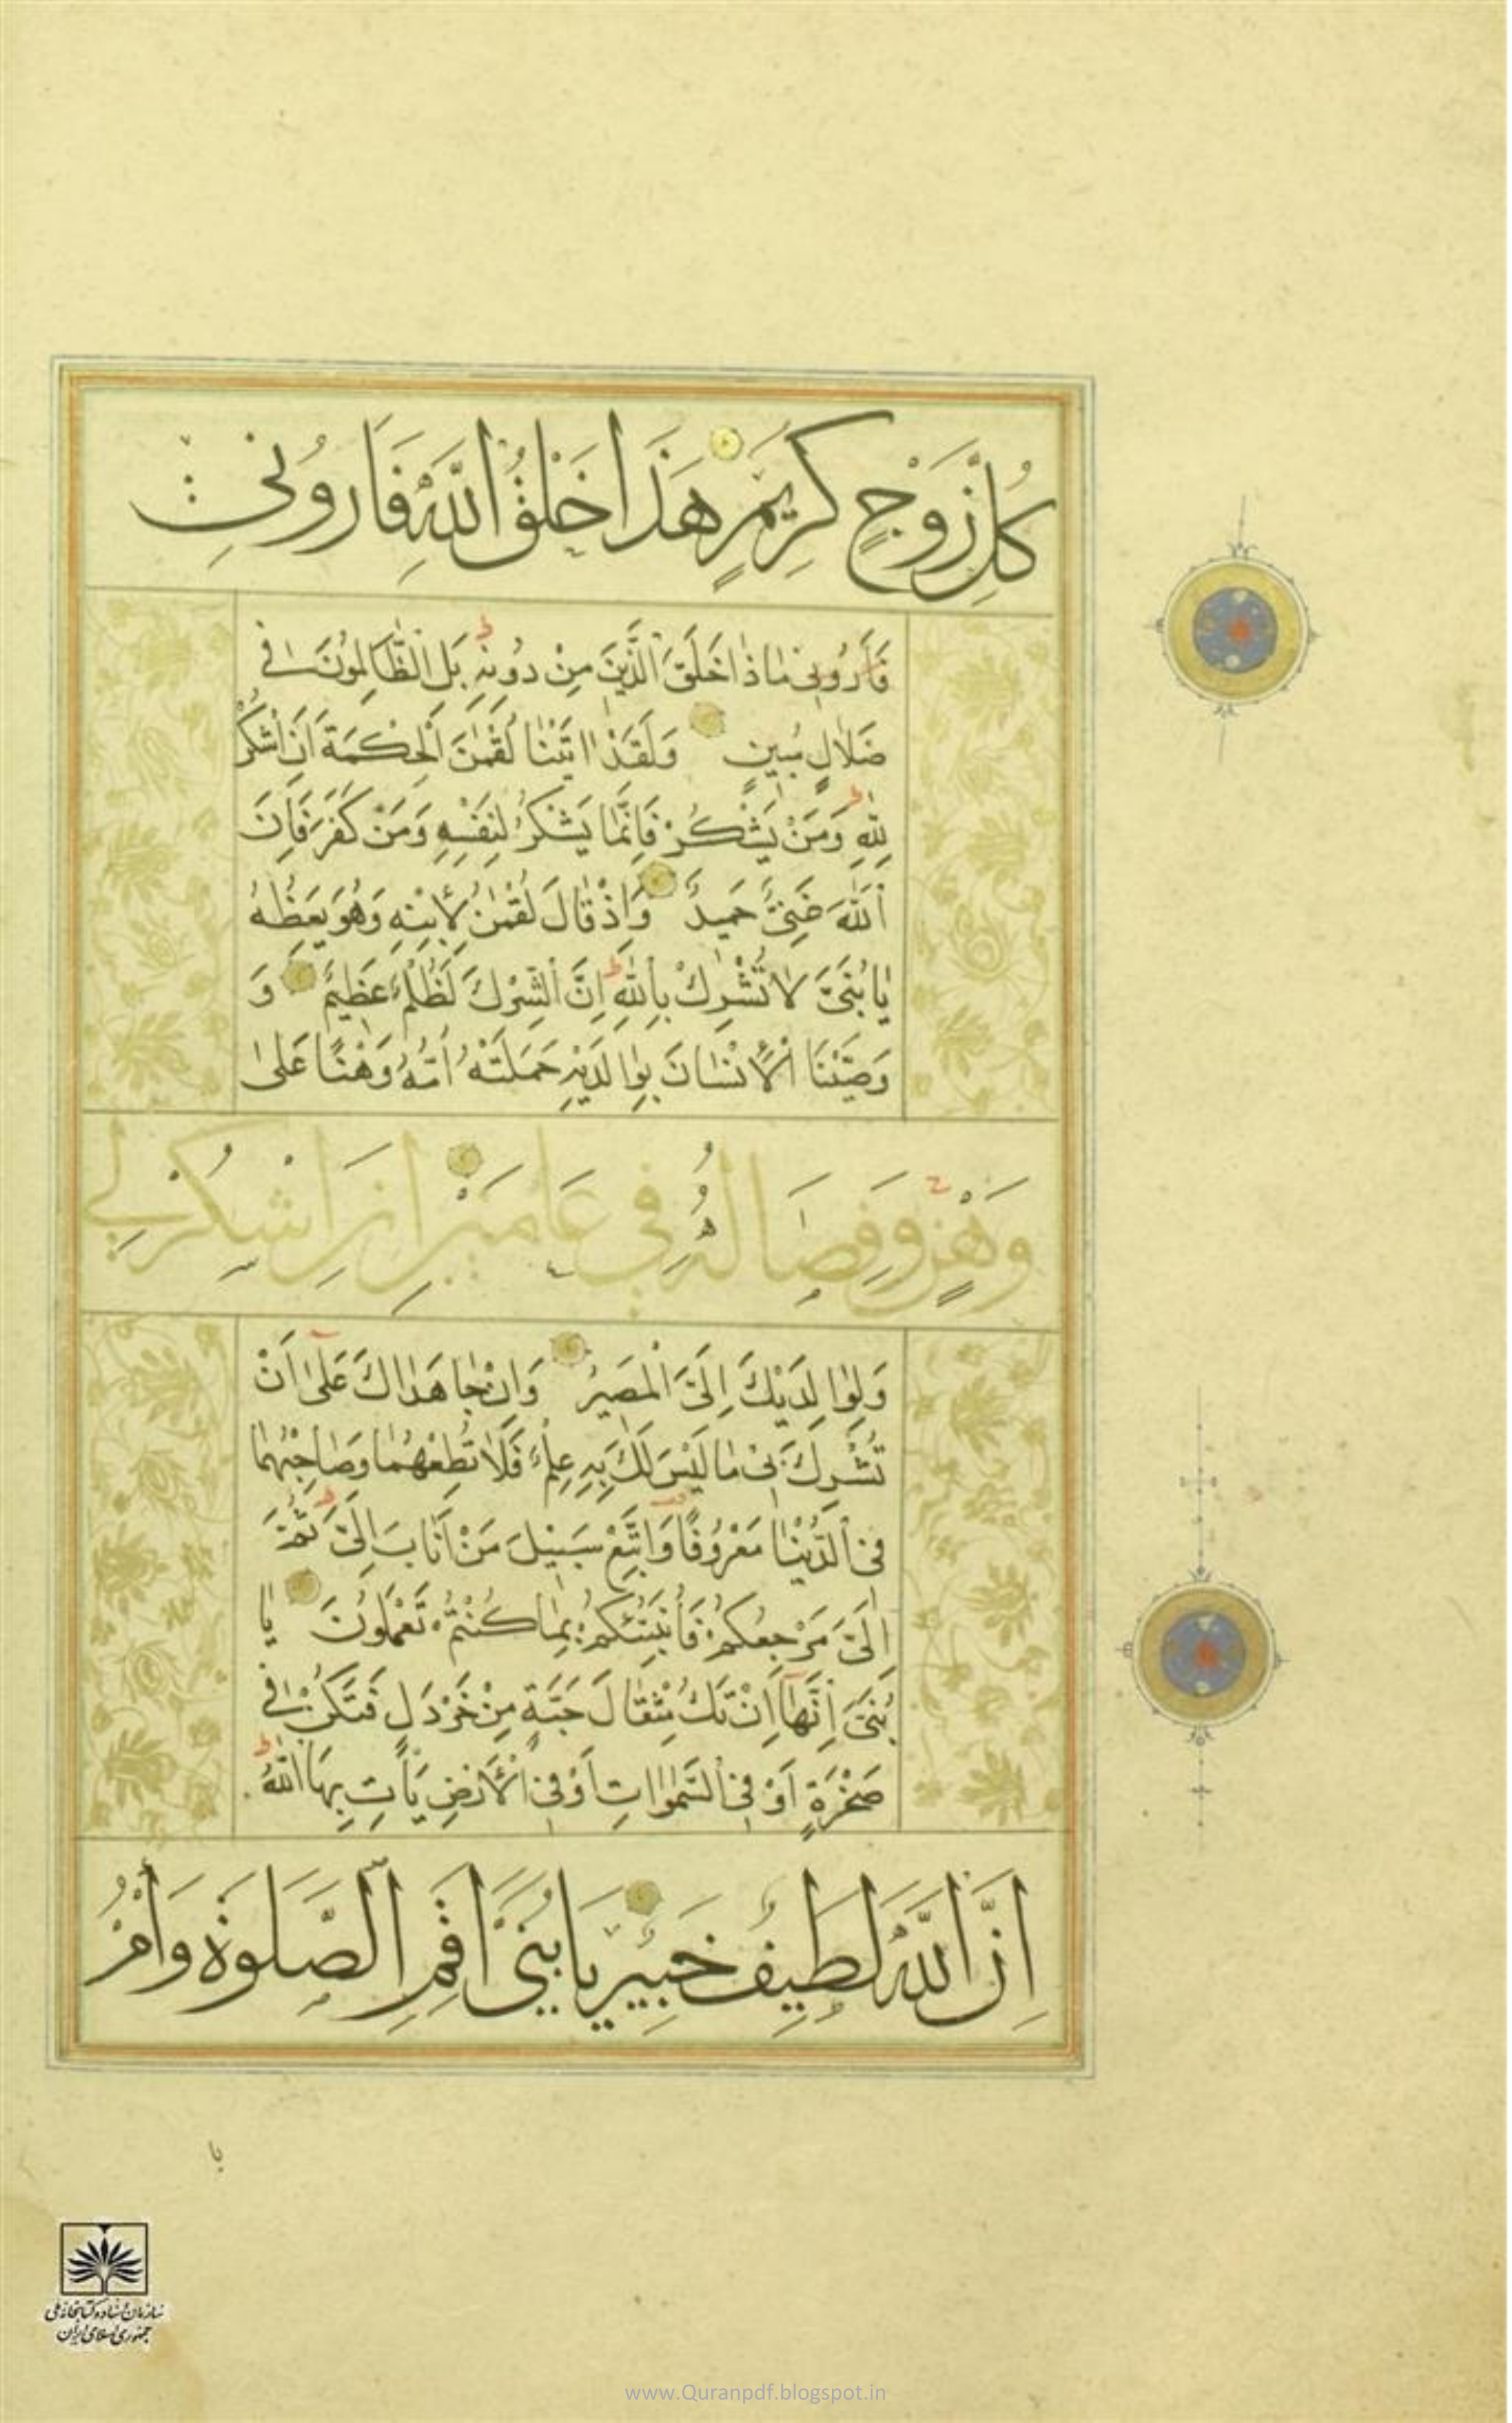 كُلِّ زَوْجٍ كَرِيمٍ هَذَا خَلْقُ اللَّهِ فَأَرُونِي
فَأَرُونِي مَاذَا خَلَقَ الَّذِينَ مِنْ دُونِهِ بَلِ الظَّالِمُونَ فِي
ضَلَالٍ مُبِينٍ وَلَقَدْ اتَيْنَا لُقْمٰنَ الْحِكْمَةَ اَنِ اشْكُرْ
لِلّٰهِ وَمَنْ يَشْكُرْ فَاِنَّمَا يَشْكُرُ لِنَفْسِهِ وَمَنْ كَفَرَ فَاِنَّ
اللّٰهَ غَنِيٌّ حَمِيدٌ وَاِذْ قَالَ لُقْمٰنُ لِابْنِهِ وَهُوَ يَعِظُهُ
يَا بُنَيَّ لَا تُشْرِكْ بِاللّٰهِ اِنَّ الشِّرْكَ لَظُلْمٌ عَظِيمٌ وَ
وَصَّيْنَا الْاِنْسَانَ بِوَالِدَيْهِ حَمَلَتْهُ اُمُّهُ وَهْنًا عَلٰى
وَهْنٍ وَفِصَالُهُ فِي عَامَيْنِ اَنِ اشْكُرْ لِي
وَلِوَالِدَيْكَ اِلَيَّ الْمَصِيرُ وَاِنْ جَاهَدَاكَ عَلٰى اَنْ
تُشْرِكَ بِي مَا لَيْسَ لَكَ بِهِ عِلْمٌ فَلَا تُطِعْهُمَا وَصَاحِبْهُمَا
فِي الدُّنْيَا مَعْرُوفًا وَاتَّبِعْ سَبِيلَ مَنْ اَنَابَ اِلَيَّ ثُمَّ
اِلَيَّ مَرْجِعُكُمْ فَاُنَبِّئُكُمْ بِمَا كُنْتُمْ تَعْمَلُونَ يَا
بُنَيَّ اِنَّهَا اِنْ تَكُ مِثْقَالَ حَبَّةٍ مِنْ خَرْدَلٍ فَتَكُنْ فِي
صَخْرَةٍ اَوْ فِي السَّمٰوَاتِ اَوْ فِي الْاَرْضِ يَأْتِ بِهَا اللّٰهُ
اِنَّ اللَّهَ لَطِيفٌ خَبِيرٌ يَا بُنَيَّ اَقِمِ الصَّلٰوةَ وَأْمُرْ
با
سازمان اسناد و کتابخانه ملی
جمهوری اسلامی ایران
www.Quranpdf.blogspot.in